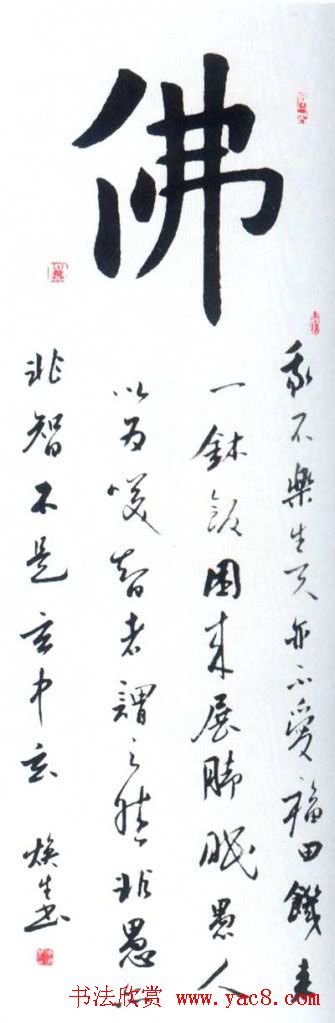 佛
我不樂生天亦不愛福田饑来
一鉢飯困来展脚眠愚人
以为笑智者謂之然非愚亦
非智不是玄中玄 焕生书
书法欣赏 www.yac8.com